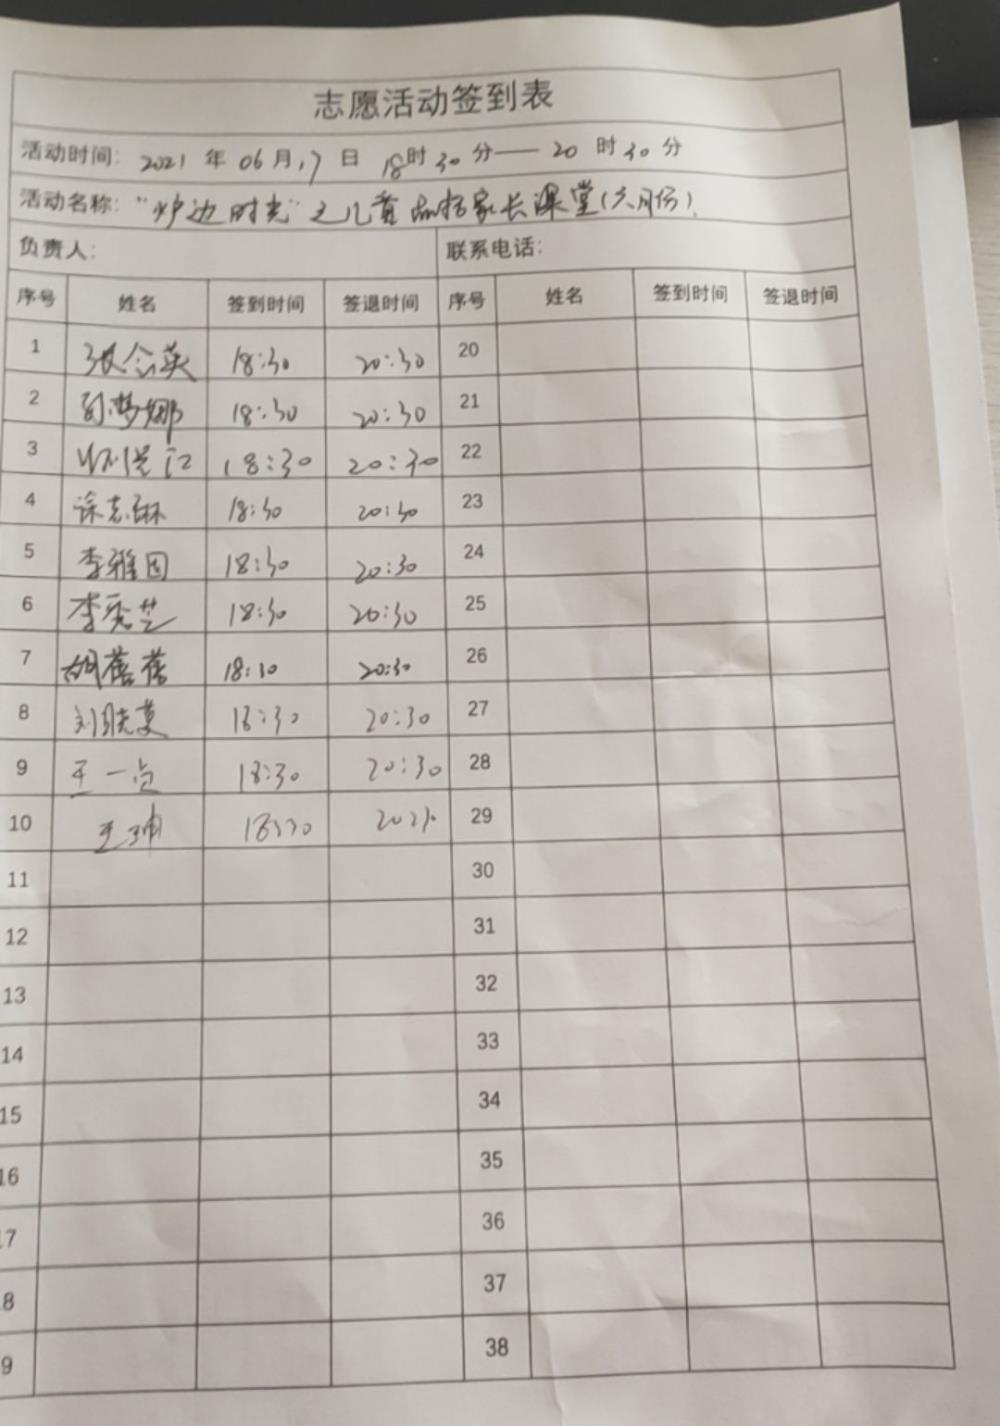 志愿活动签到表
活动时间: 2021 年 06 月 17 日 18时 30 分—— 20 时 30 分
活动名称: "炉边时光"之儿童 家长课堂(六月份)
负责人: 联系电话:
序号 姓名 签到时间 签退时间 序号 姓名 签到时间 签退时间
1 张会英 18:30 20:30 20
2 梦娜 18:30 20:30 21
3 18:30 20:30 22
4 徐志琳 18:30 20:30 23
5 李雅园 18:30 20:30 24
6 李秀芝 18:30 20:30 25
7 胡蓓蓓 18:30 20:30 26
8 刘晓莫 18:30 20:30 27
9 王一点 18:30 20:30 28
10 王坤 18:30 29
11 30
12 31
13 32
14 33
15 34
16 35
17 36
18 37
19 38